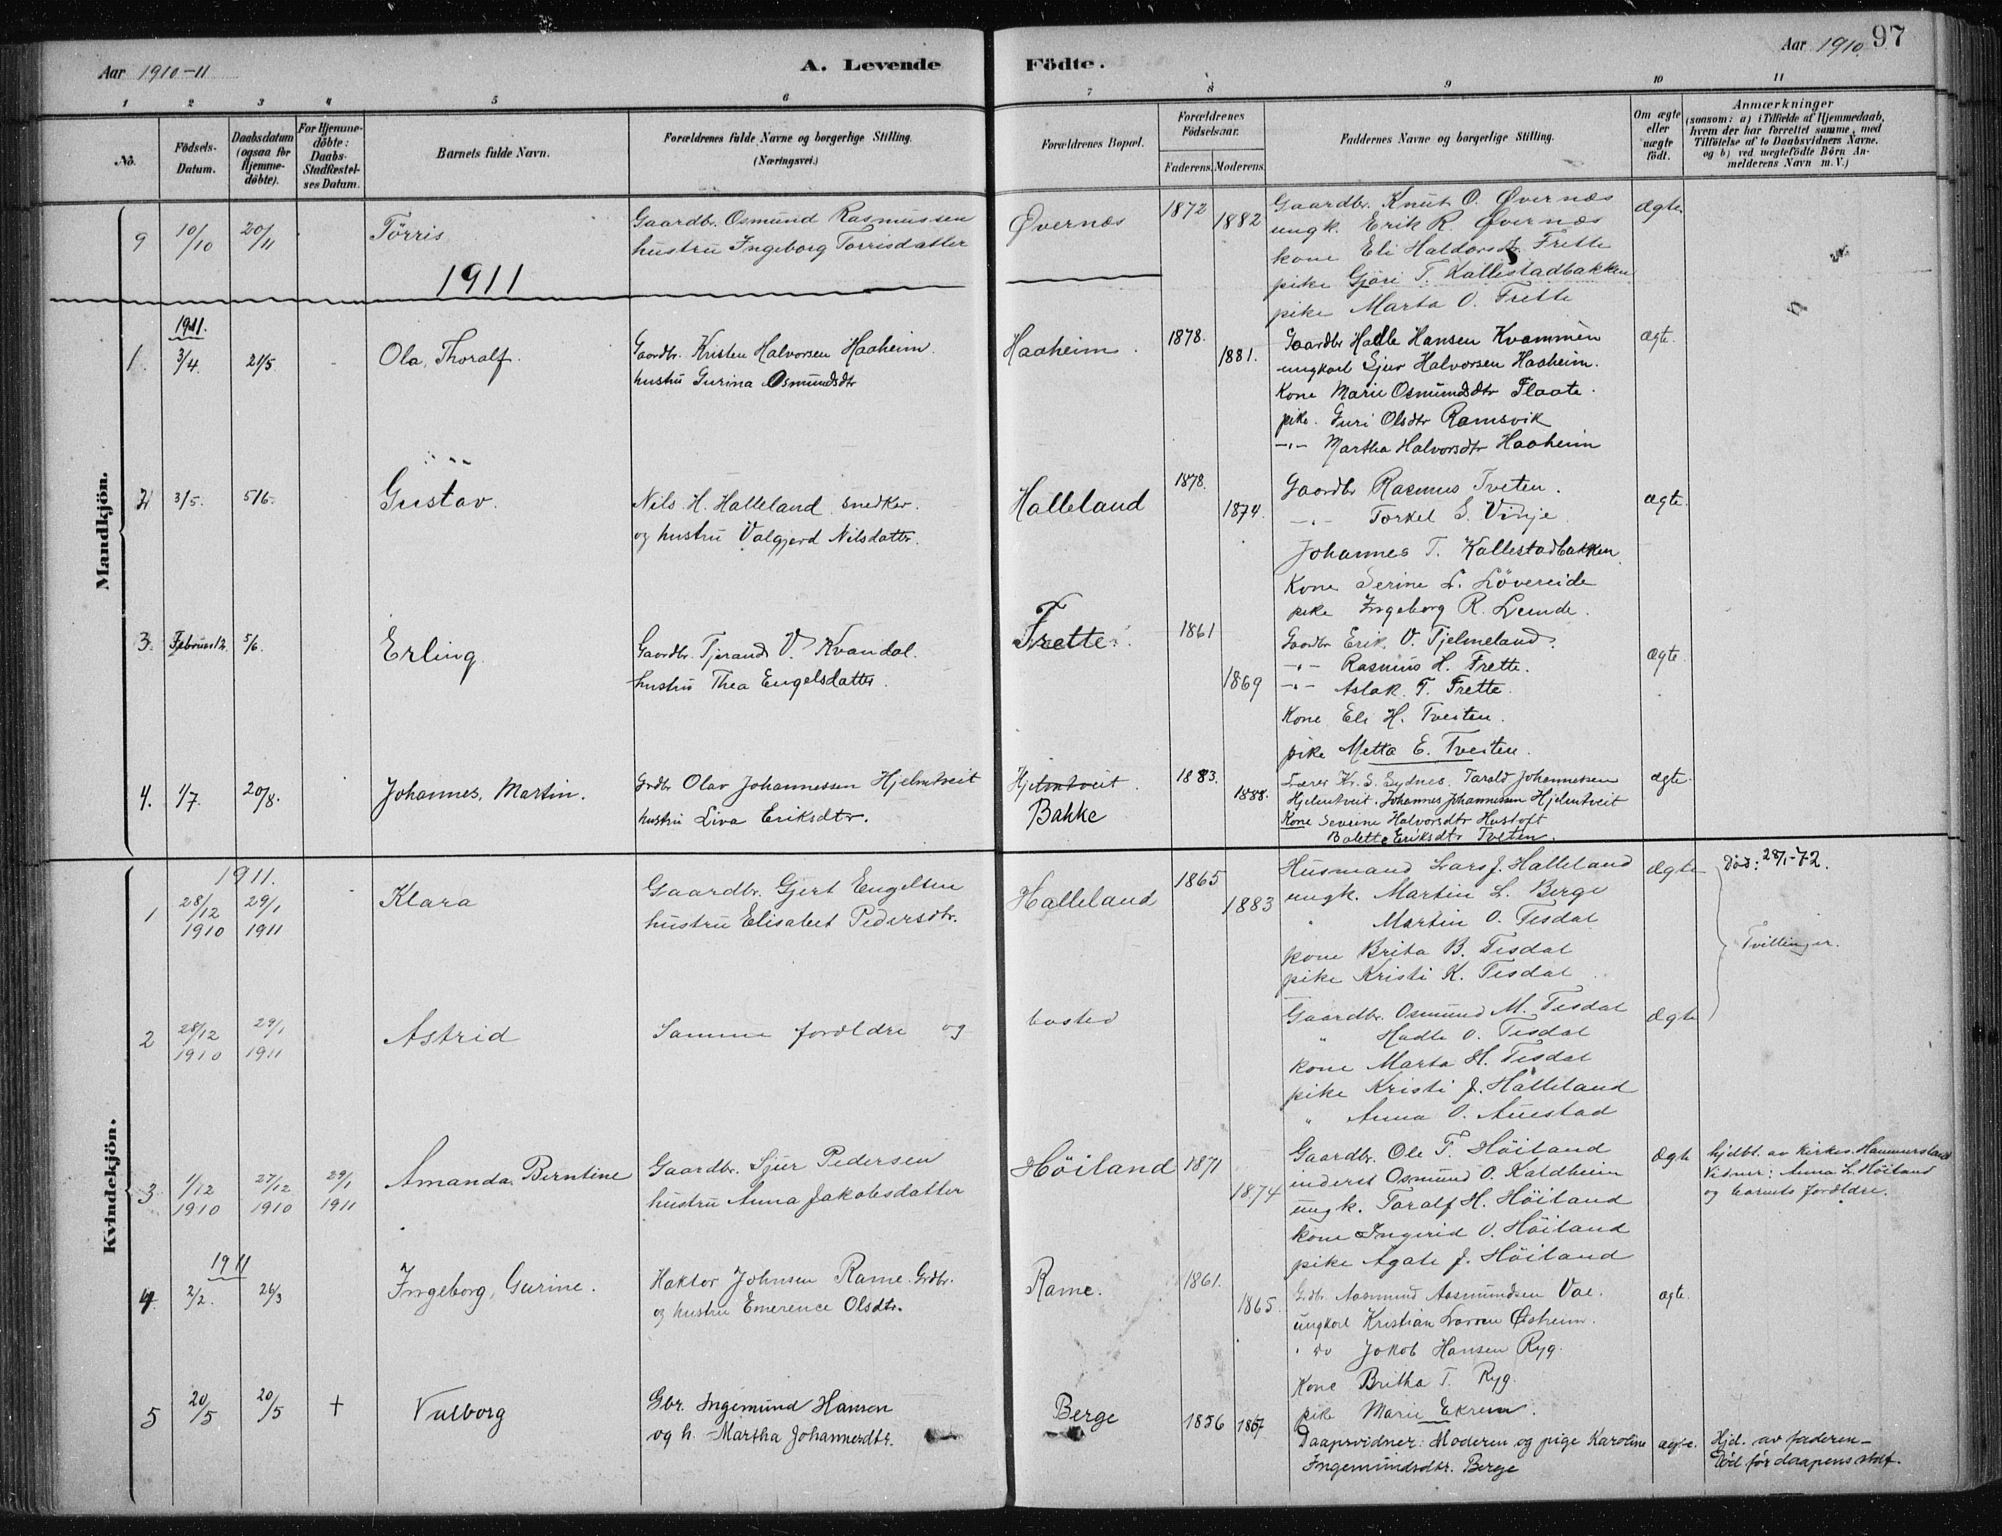 Aar 1910-11
A. Levende
Födte.
Aar 1910.
97
1 2 3 4 5 6 7 8 9 10 11
No.
Födsels-
Datum.
Daabsdatum
(ogsaa for
Hjemme-
döbte).
For Hjemme-
döbte:
Daabs-
Stadfæstel-
ses Datum.
Barnets fulde Navn.
Forældrenes fulde Navne og borgerlige Stilling.
(Næringsvei.)
Forældrenes Bopæl.
Forældrenes
Födselsaar.
Faderens. Moderens.
Faddernes Navne og borgerlige Stilling.
Om ægte
eller
uægte
födt.
Anmærkninger
(saasom: a) i Tilfælde af Hjemmedaab,
hvem der har forrettet samme, med
Tilföielse af to Daabsvidners Navne,
og b) ved uægtefödte Börn An-
melderens Navn m. V.)
Mandkjön.
9 10/10 20/11 Tørris
Gaardbr. Osmund Rasmussen
hustru Ingeborg Torrisdatter
Øvernæs
1872 1882
Gaardbr. Knut O. Øvernæs
ungk. Erik R. Øvernæs
kone Eli Haldorsdr. Frette
pike Gjöri T. Kallestadbakken
pike Marta O. Frette
Ægte
1911
1911.
1. 3/4. 21/5 - Ola, Thoralf.
Gaardbr. Kristen Halvorsen Haaheim.
hustru Gurina Osmundsdtr
Haaheim.
1878. 1881.
Gaardbr Hadle Hansen Kvammen
ungkarl Sjur Halvorsen Haaheim.
Kone Marie Osmundsdtr Flaate.
pike. Guri Olsdtr Ramsvik
-"- Martha Halvorsdtr Haaheim
ægte.
2 3/5. 5/6. Gustav.
Nils H. Halleland snedker.
og hustru Valgjerd Nilsdattr.
Halleland
1878. 1874.
Gaardbr Rasmus Tveten.
-"- Torkel S. Vinje
Johannes T. Kallestadbakken
Kone Serine L. Lövereide
pike Ingeborg R. Lunde.
Ægte.
3. Februar 5/6. Erling
Gaardbr. Tjerand V. Kvandal.
hustru Thea Engelsdatter
Frette.
1861 1869
Gaardbr Erik. V. Tjelmeland.
-"- Rasmus H. Frette.
-"- Aslak. T. Frette.
Kone Eli H. Tveiten.
pike Metta E. Tveiten.
Ægte.
4. 1/7. 20/8. Johannes, Martin.
Grdbr Olav Johannessen Hjelmtveit
hustru Liva Eriksdtr.
Hjelmtveit.
Bakke
1883. 1888.
Lærer Kr. S. Sydnes. Tarald Johannessen
Hjelmtveit. Johannes Johannessen Hjelmtveit
Kone Severine Halvorsdtr Hustoft
Bolette Eriksdtr Tveten.
ægte.
Kvindekjön.
1911.
1 28/12 1910 29/1 1911 Klara
Gaardbr. Gjert Engelsen
hustru Elisabet Pedersdtr.
Halleland
1865 1883
Husmand Lars J. Halleland
ungk. Martin L. Berge
" Martin O. Tisdal
kone Brita B. Tisdal
pike Kristi K. Tisdal
Ægte
Död: 28/1-72.
Tvillinger.
2 28/12 1910 29/1 1911 Astrid
Samme forældre og bosted
Gaardbr. Osmund M. Tisdal
" Hadle O. Tisdal
kone Marta H. Tisdal
pike Kristi J. Halleland
" Anna O. Austad
Ægte
3 1/12 1910 27/12 1910 29/1 1911 Amanda Berntine
Gaardbr. Sjur Pedersen
hustru Anna Jakobsdatter
Höiland
1871 1874
Gaardbr. Ole T. Höiland
enderst Osmund O. Kaldheim
ungk. Taralf H. Höiland
kone Ingerid O. Höiland
pike Agate J. Höiland
Ægte
hjdbt. av kirkes. Hammersland
Vidner: Anna L. Höiland
og barnets forældre.
1911
4. 2/2. 26/3 Ingeborg, Gurine.
Haktor Johnsen Rame. Grdbr.
og hustru Emerence Olsdtr.
Rame.
1861. 1865
Grdbr. Aasmund Aasmundsen Vae.
ungkarl Kristian Larsen Øsheim.
" do Jakob Hansen Ryg.
Kone Britha T. Ryg.
pike Marie Ekrem.
ægte.
5 20/5 20/5 + Valborg
Gbr. Ingemund Hansen
og h. Martha Johannesdtr.
Berge
1856 1867
Daapsvidner: Moderen og pige Karoline
Ingemundsdtr. Berge
ægte.
Hjd. av faderen -
Död för daapens stadf.